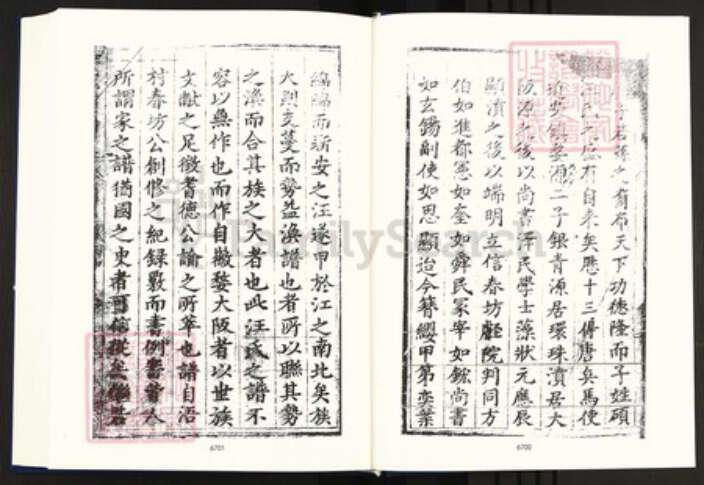 子若孫之有布天下功德隆而子姓碩
氏之盛有自来矣歷十三傳唐兵馬使
鎮婺源二子銀青源居環珠濆居大
阪源之後以尚書澤民學士藻狀元應辰
顯濆之後以端明立信春坊廰院判同方
伯如進都憲如奎如舜民冢宰如鋐尚書
如玄錫副使如思顯迨今簪纓甲第奕葉
綿綿而新安之汪遂甲於江之南北矣族
大則支蔓而勢益渙譜也者所以聯其勢
之渙而合其族之大者也此汪氏之譜不
容以無作也而作自歙婺大阪者以世族
文獻之足徵耆德公諭之所筆也譜自浯
村春坊公創修之紀錄數而書例
所謂家之譜猶國之史者
6701
6700
FamilySearch